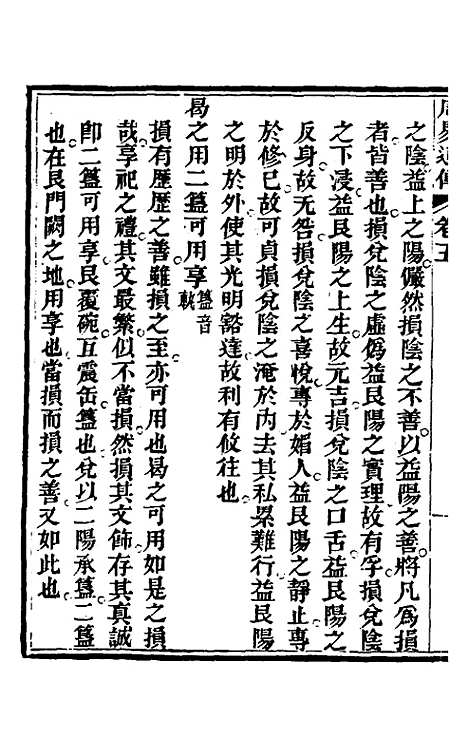 周易通傳 卷五
之陰益上之陽儼然損陰之不善以益陽之善將凡爲損
者皆善也損兌陰之虛僞益艮陽之實理故有孚損兌陰
之下浸益艮陽之上生故元吉損兌陰之口舌益艮陽之
反身故无咎損兌陰之喜悅專於媚人益艮陽之靜止專
於修已故可貞損兌陰之淹於內去其私累難行益艮陽
之明於外使其光明豁達故利有攸往也
曷之用二簋可用享 簋音軌
損有歷歷之善雖損之至亦可用也曷之可用如是之損
哉享祀之禮其文最繁似不當損然損其文飾存其真誠
卽二簋可用享艮覆碗互震缶簋也兌以二陽承簋二簋
也在艮門闕之地用享也當損而損之善又如此也